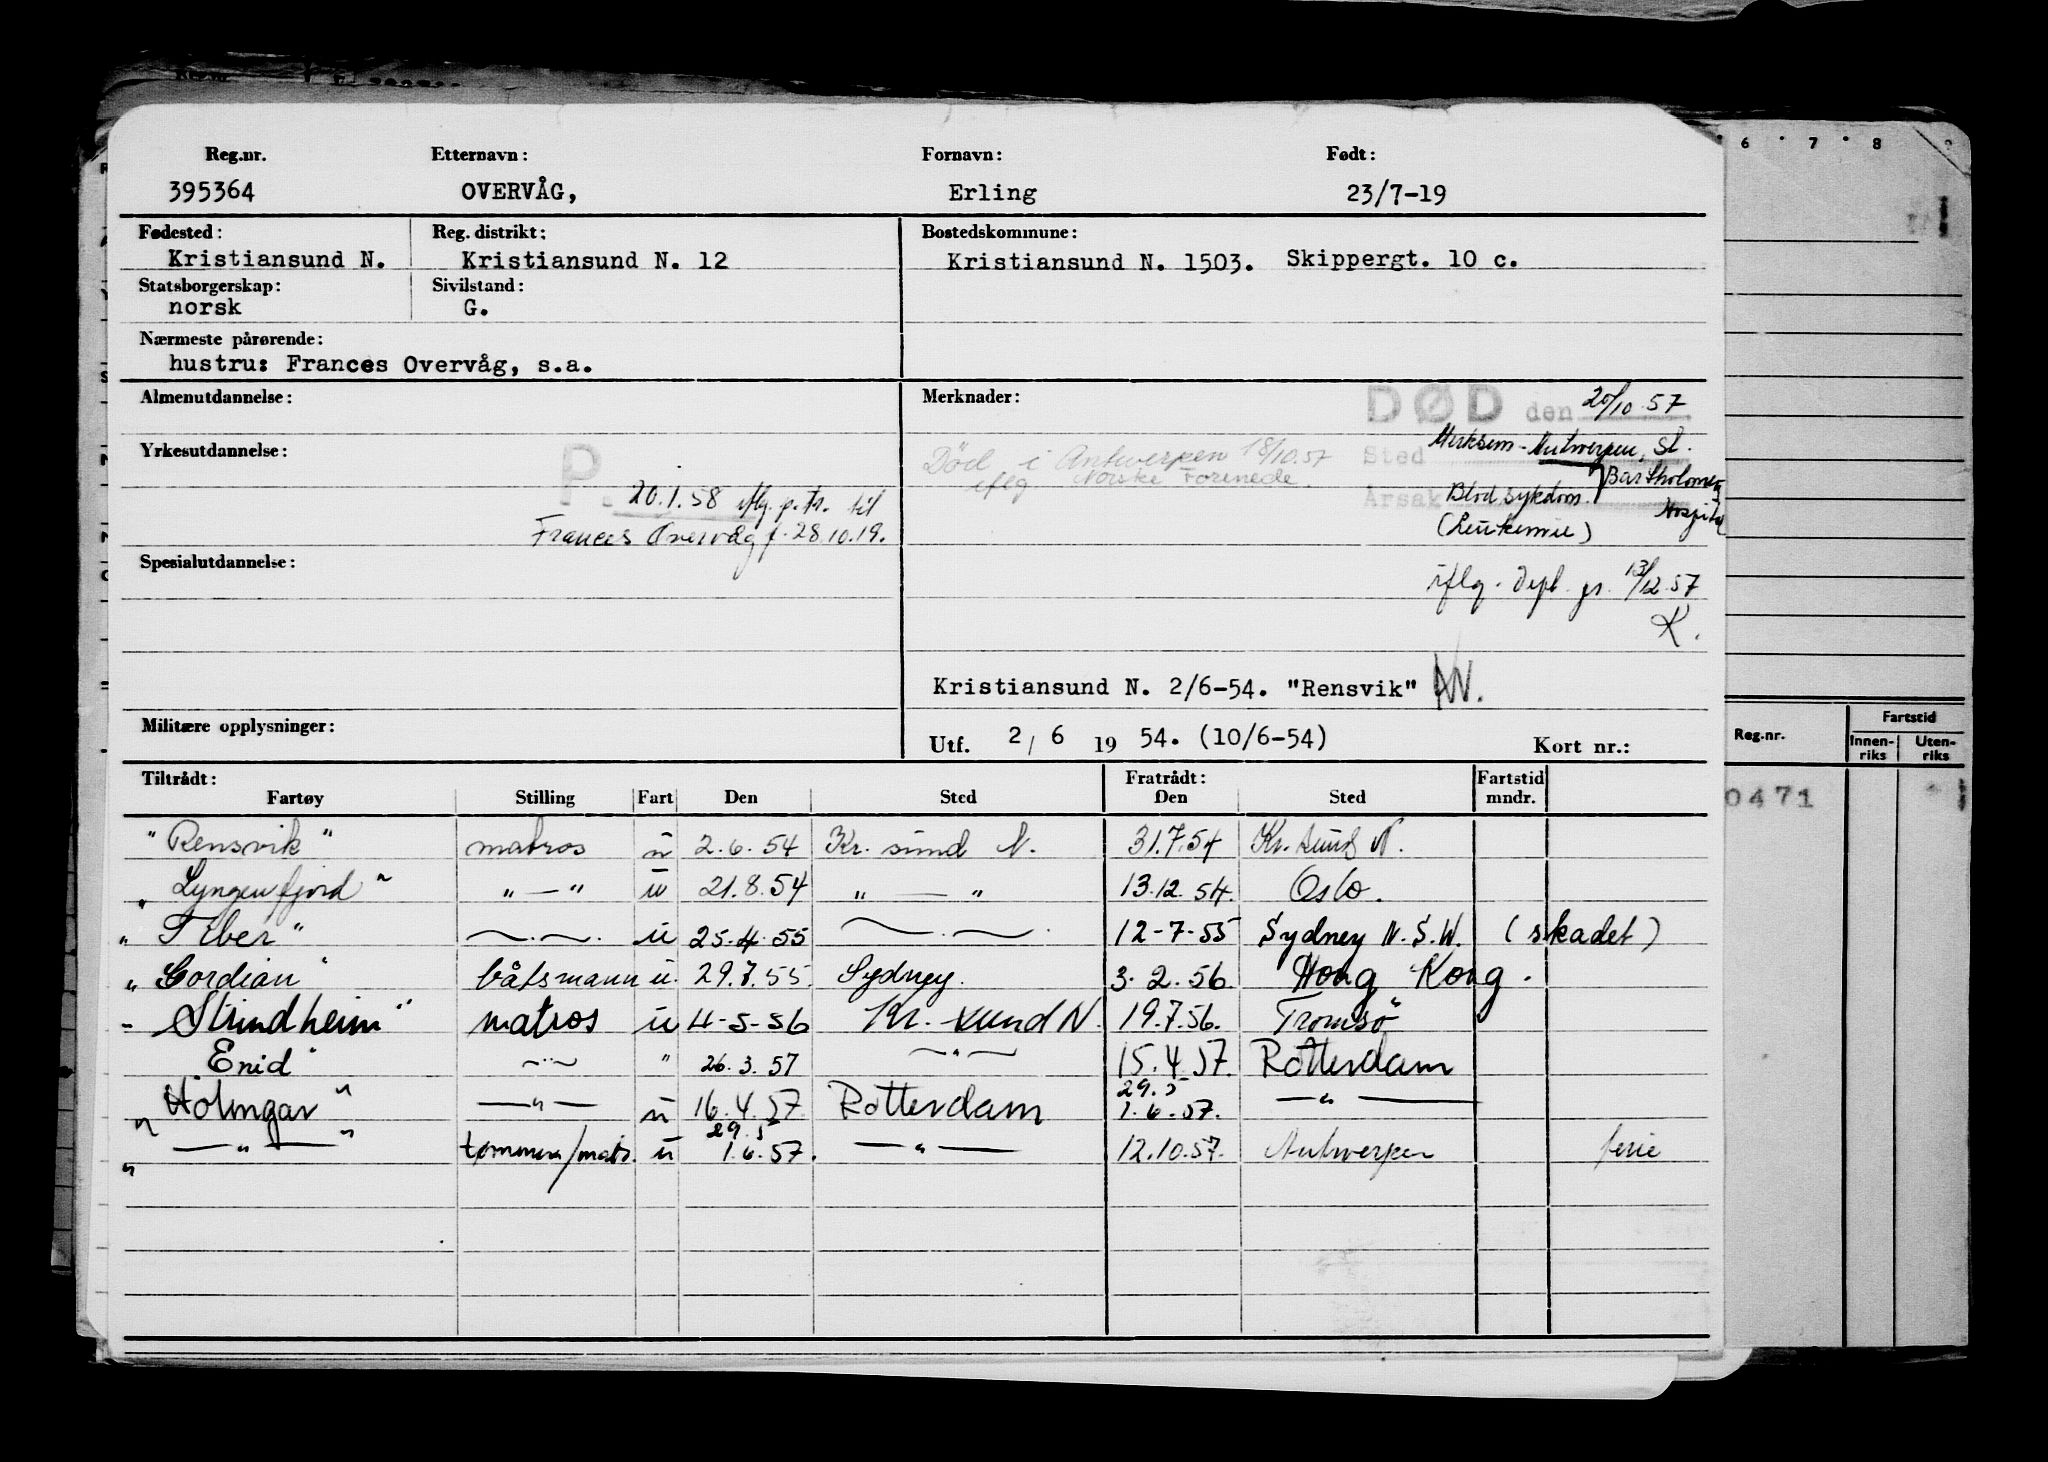 Reg.nr. Etternavn: Fornavn: Født:
395364 OVERVÅG, Erling 23/7-19
Fødested: Reg. distrikt: Bostedskommune:
Kristiansund N. Kristiansund N. 12 Kristiansund N. 1503. Skippergt. 10 c.
Statsborgerskap: Sivilstand:
norsk G.
Nærmeste pårørende:
hustru: Frances Overvåg, s.a.
Almenutdannelse: Merknader: DØD den 20/10.57
Yrkesutdannelse: Død i Antwerpen 18/10.57 Sted Merksem-Antwerpen, St.
P. iflg Norske Forenede. Bartholomeus
20.1.58 iflg. p.kr. til Årsak Blod,sykdom. Hospital
Frances Overvåg f. 28.10.19. (Leukemie)
Spesialutdannelse:
iflg. Dept. gr. 13/12.57
K.
Kristiansund N. 2/6-54. "Rensvik" AN.
Militære opplysninger: Utf. 2/6 19 54. (10/6-54) Kort nr.:
Tiltrådt: Fratrådt: Fartstid
Fartøy Stilling Fart Den Sted Den Sted mndr.
"Rensvik" matros u 2.6.54 Kr. sund N. 31.7.54 Kr. sund N.
"Lyngenfjord" " — " u 21.8.54 " — " 13.12.54. Oslo.
"Tiber" —.—. u 25.4.55 —.— 12-7-55 Sydney N.S.W. (skadet)
"Gordian" båtsmann u. 29.7.55. Sydney. 3.2.56. Hong Kong.
"Strindheim" matros u 4-5-56 Kr. sund N. 19.7.56. Tromsø
Enid" —"— " 26.3.57 —"— 15.4.57. Rotterdam
29.5
"Holmgar" —"— u 16.4.57 Rotterdam 1.6.57. —"—
29.5
"—"—" tømmerm/mats. u 1.6.57. —"— 12.10.57. Antwerpen ferie
6 7 8 9
Reg.nr. Fartstid
Innen-riks Uten-riks
0471